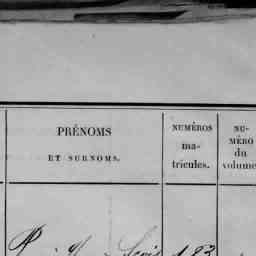 PRÉNOMS
ET SURNOMS.
NUMÉROS
ma-
tricules.
NU-
MÉRO
du
volume